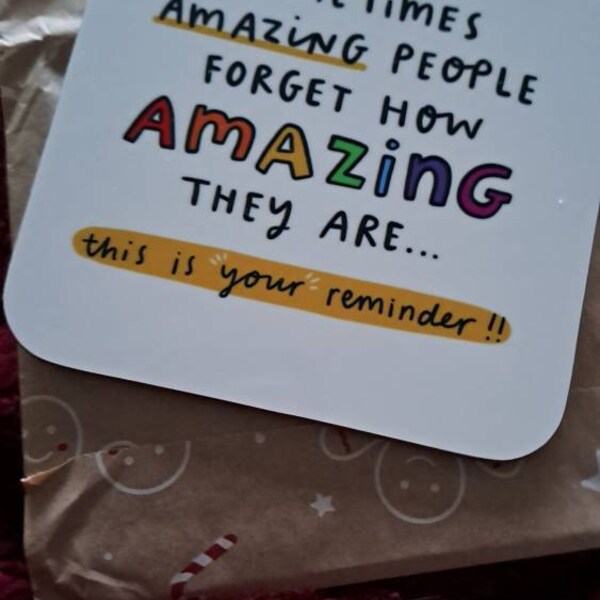 TIMES
AMAZING PEOPLE
FORGET HOW
AMAZING
THEY ARE...
this is "your" reminder!!